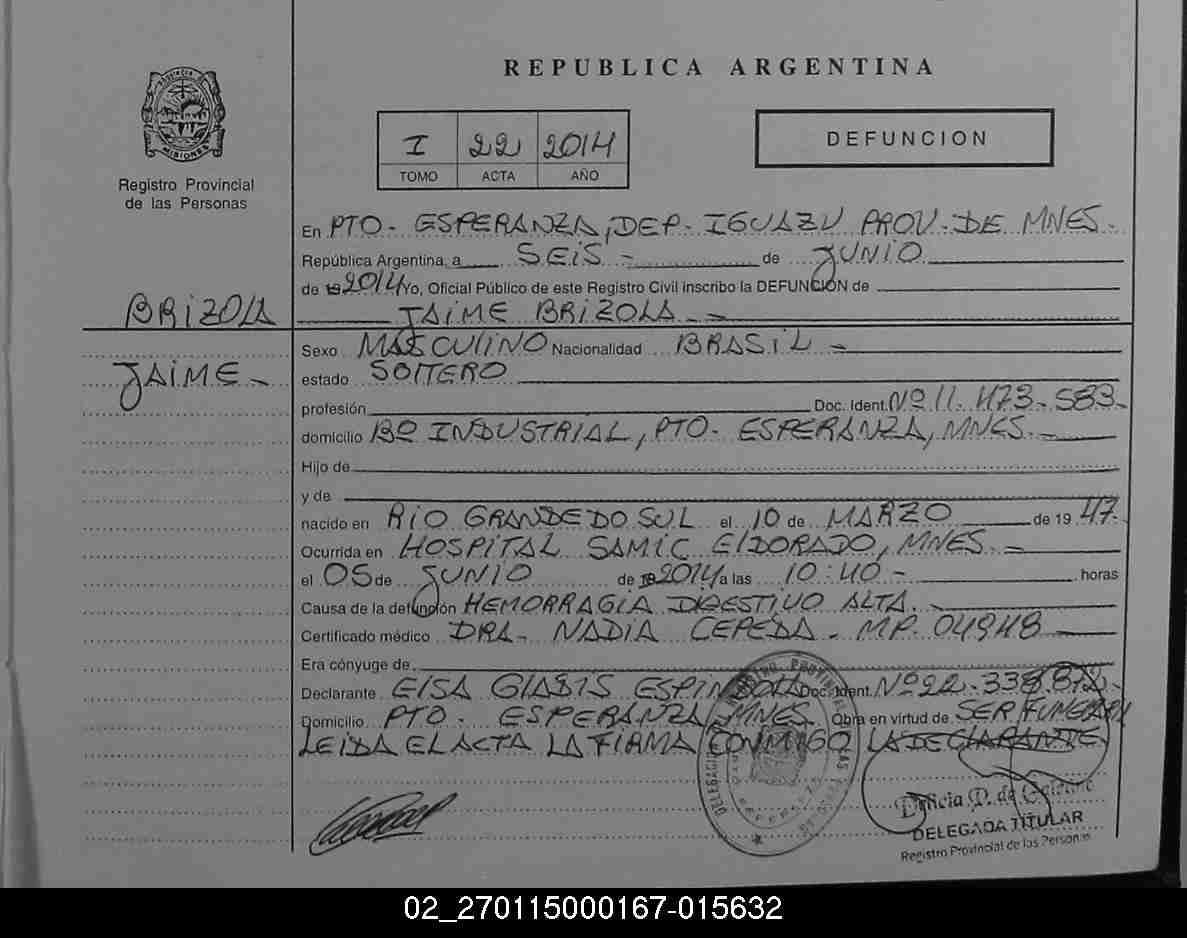 REPUBLICA ARGENTINA
PROVINCIA DE MISIONES
Registro Provincial
de las Personas
I 22 2014
TOMO ACTA AÑO
DEFUNCION
En PTO- ESPERANZA, DEP- IGUAZU PROV-DE MNES-
República Argentina, a SEIS- de JUNIO
de 19 2014 Yo, Oficial Público de este Registro Civil inscribo la DEFUNCIÓN de
BRIZOLA
JAIME BRIZOLA--
Sexo MASCULINO Nacionalidad BRASIL-
JAIME-
estado SOLTERO
profesión Doc. Ident. Nº 11.473-583-
domicilio Bº INDUSTRIAL, PTO- ESPERANZA, MNES.-
Hijo de
y de
nacido en RIO GRANDE DO SUL el 10 de MARZO de 19 47.
Ocurrida en HOSPITAL SAMIC ElDORADO, MNES.-
el 05 de JUNIO de 19 2014 a las 10:40- horas
Causa de la defunción HEMORRAGIA DIGESTIVO ALTA.-
Certificado médico DRA- NADIA CEPEDA- MP. 04948
Era cónyuge de
Declarante ElSA GLADIS ESPINDOLA Doc. Ident. Nº 22.338.
Domicilio PTO- ESPERANZA, MNES. Obra en virtud de SER FUNERARI
LEIDA El ACTA LA FIRMA CONMIGO LA DECLARANTE.
DELEGADA TITULAR
Registro Provincial de las Personas
02_270115000167-015632